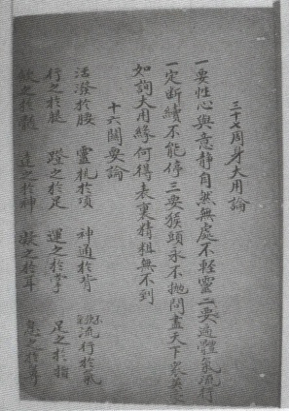 三十七周身大用論
一要性心與意靜自然無處不輕靈二要遍體氣流行
一定斷續不能停三要猴頭永不拋問盡天下衆英豪
如詢大用緣何得表裏精粗無不到
十六關要論
活潑於腰　靈机於項　神通於背　流行於氣
行之於腿　蹬之於足　運之於掌　足之於指
歛之於髓　達之於神　凝之於耳　息之於鼻